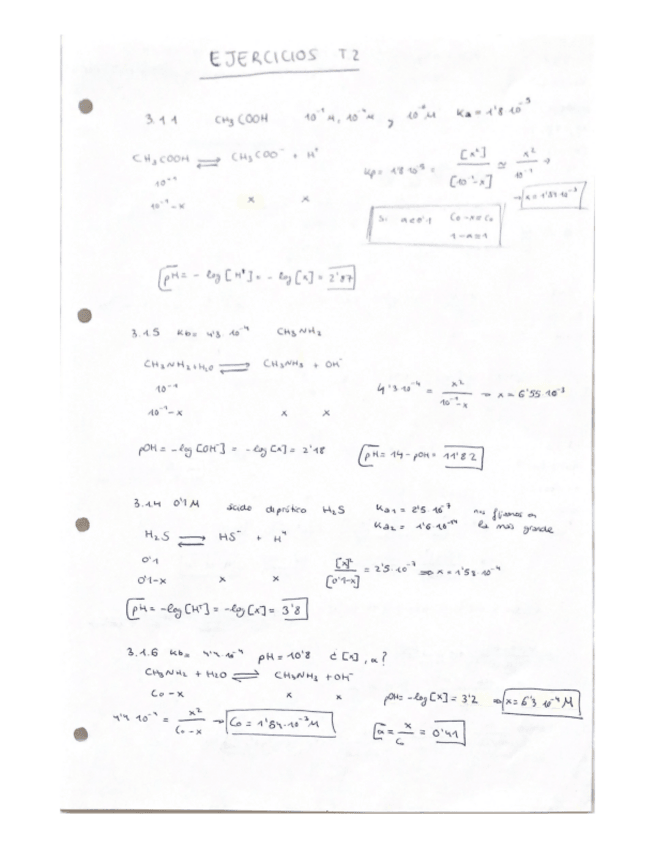 EJERCICIOS T.2
3.1.1 CH3COOH 10⁻¹M, 10⁻⁴M y M Ka = 1'8·10⁻⁵
CH3COOH ⇌ CH3COO⁻ + H⁺
10⁻¹
10⁻¹-x x x
= [x²]/[10⁻¹-x] ≃ x²/10⁻¹ →
→ x = 1'34·10⁻³
Si α<0'1 Co-x≈Co
1-α≈1
pH = -log[H⁺] = -log[x] = 2'87
3.1.5 Kb = 4'3·10⁻⁴ CH3NH2
CH3NH2 + H2O ⇌ CH3NH3 + OH⁻
10⁻¹
10⁻¹-x x x
4'3·10⁻⁴ = x²/10⁻¹-x ⇒ x = 6'55·10⁻³
pOH = -log[OH⁻] = -log[x] = 2'18 pH = 14-pOH = 11'82
3.1.4 0'1M ácido diprótico H2S Ka1 = 2'5·10⁻⁷ nos fijamos en
Ka2 = 1'6·10⁻¹⁴ la más grande
H2S ⇌ HS⁻ + H⁺
0'1
0'1-x x x
[x]²/[0'1-x] = 2'5·10⁻⁷ ⇒ x = 1'58·10⁻⁴
pH = -log[H⁺] = -log[x] = 3'8
3.1.6 Kb = 4'4·10⁻⁴ pH = 10'8 ¿[x], α?
CH3NH2 + H2O ⇌ CH3NH3 + OH⁻
Co-x x x
pOH = -log[x] = 3'2 ⇒ x = 6'3·10⁻⁴ M
4'4·10⁻⁴ = x²/Co-x → Co = 1'54·10⁻³ M
α = x/C = 0'41